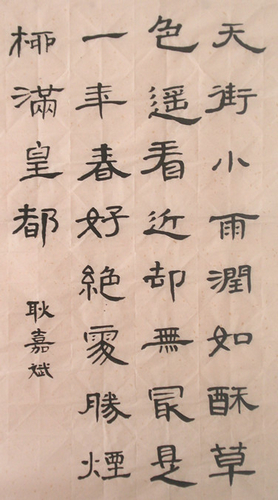 天街小雨潤如酥草
色遥看近却無最是
一年春好絕處勝煙
柳滿皇都
耿嘉斌